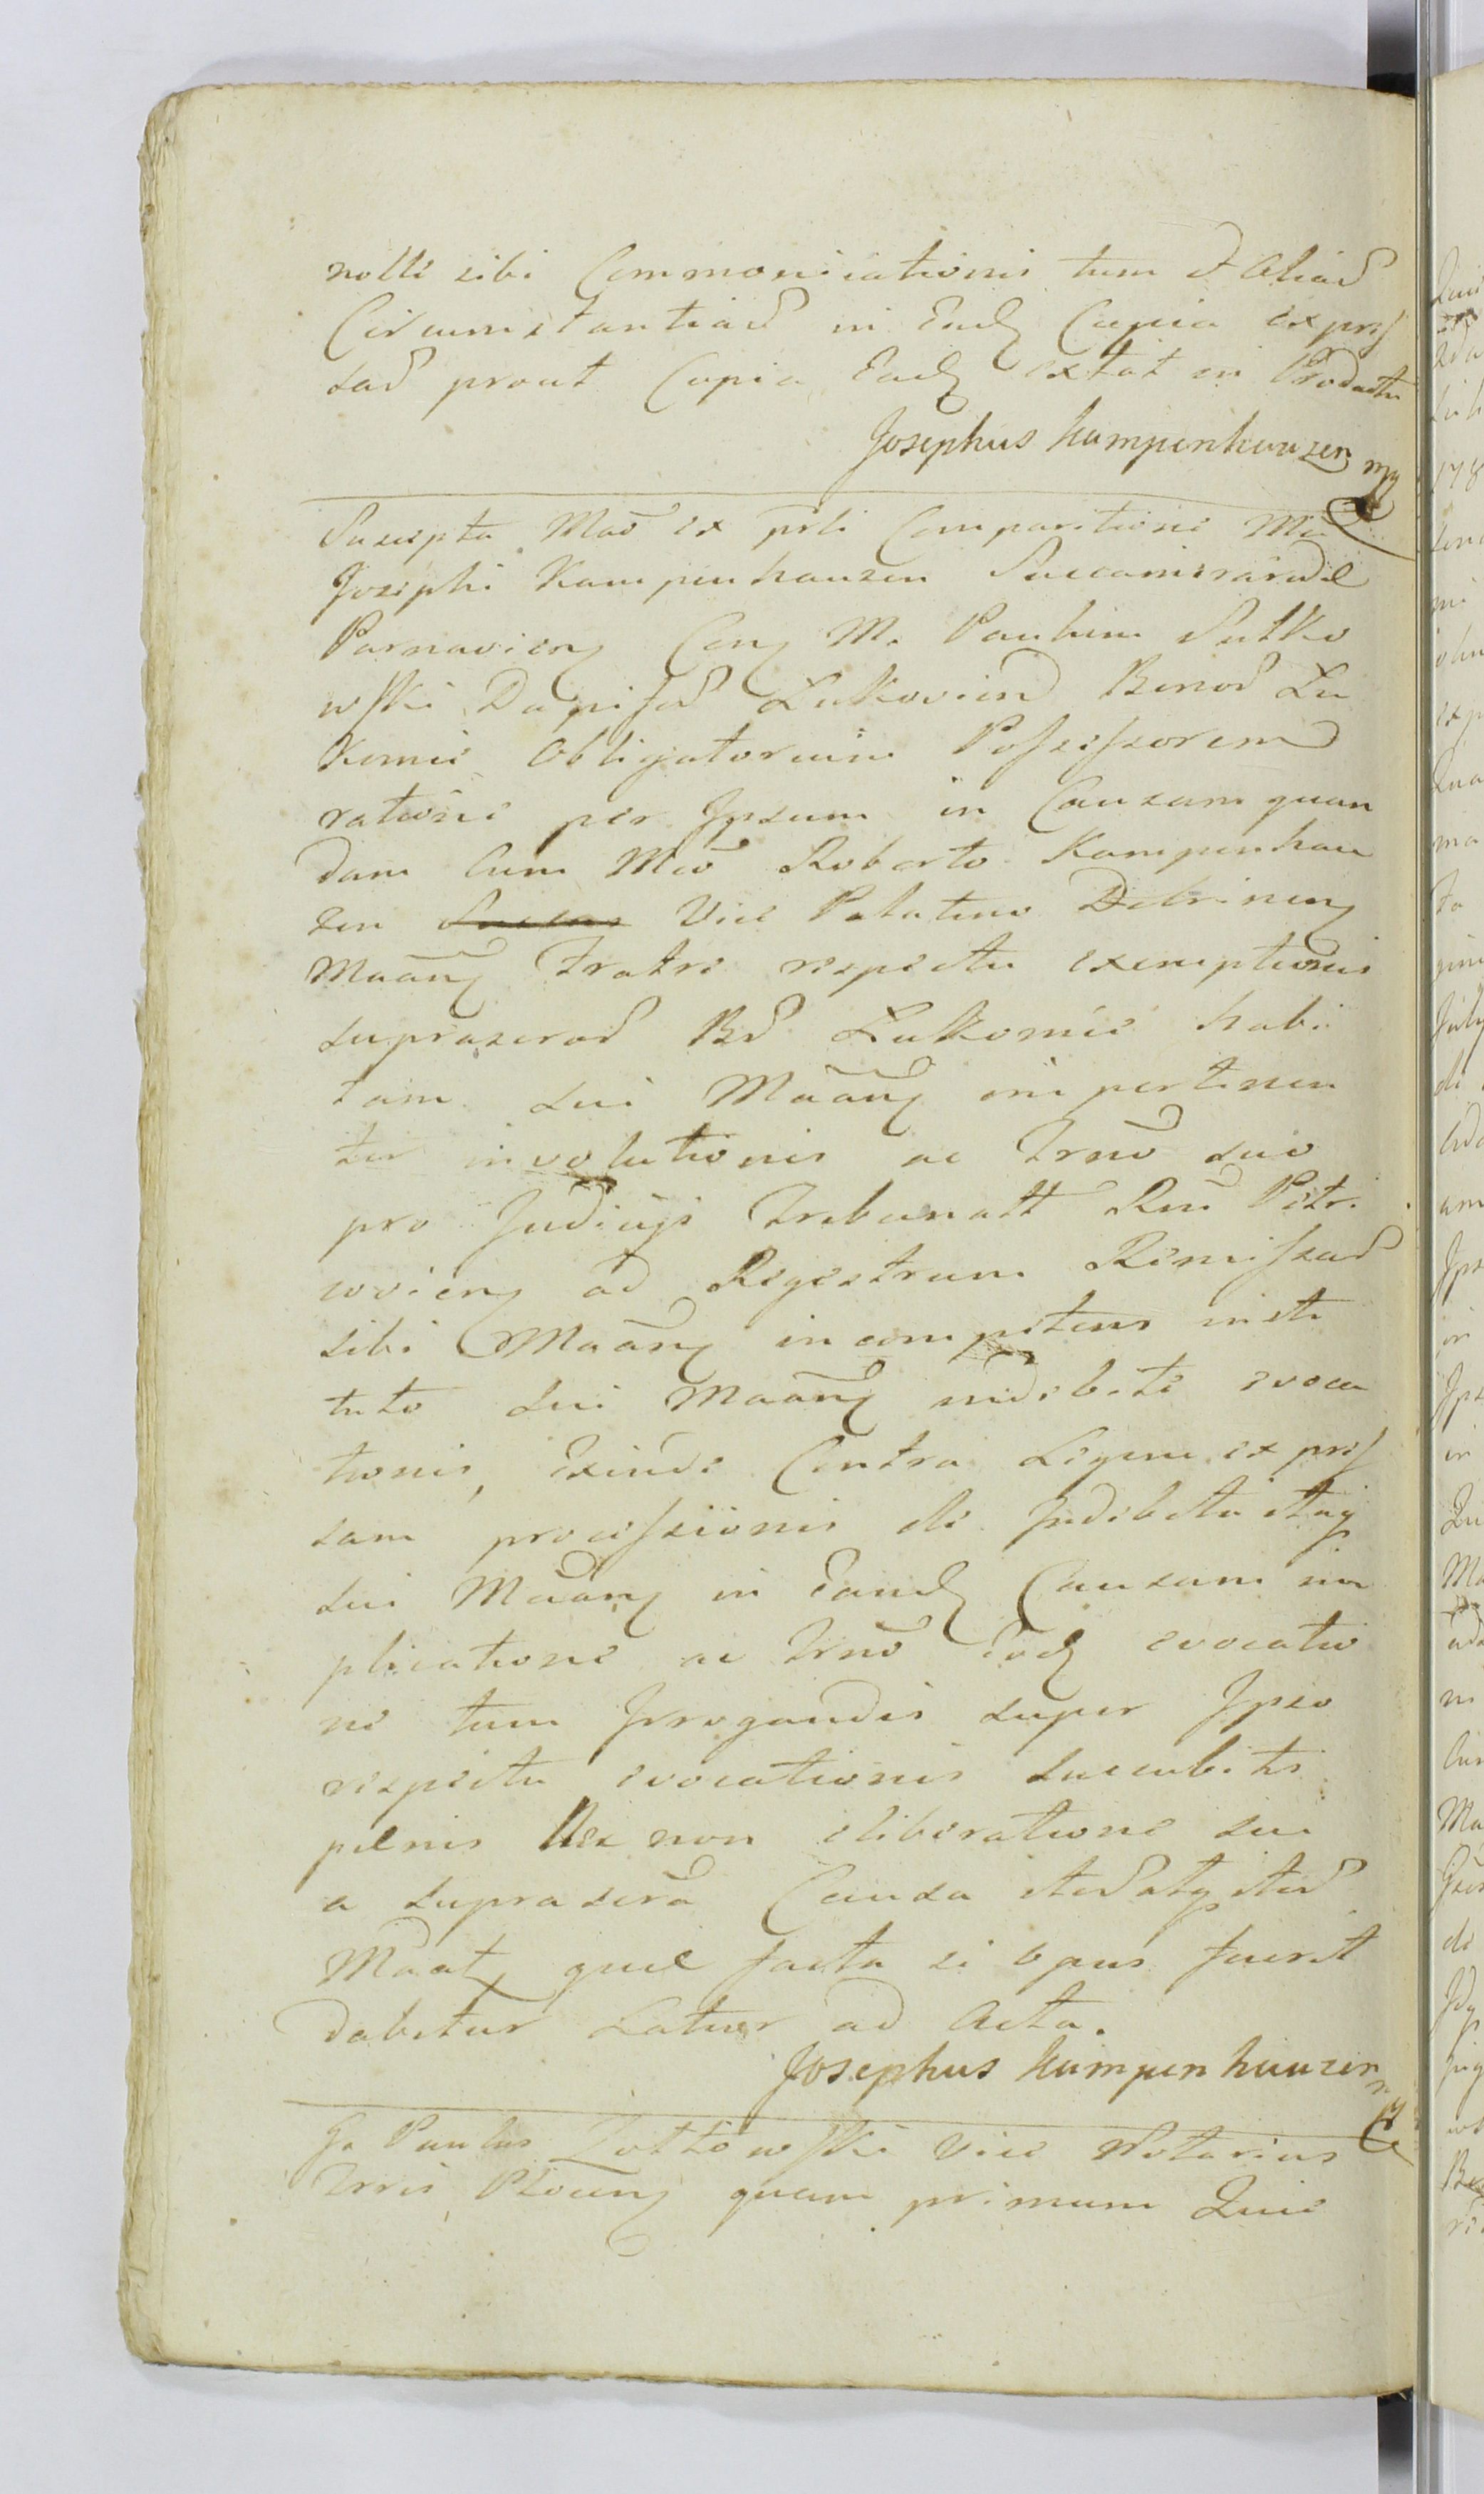 nolle sibi Communicationis tum et Aliad
Circumstantiad in Ead Copia expres
sad prout Copia Ead extat in Producta
Josephus Kampenhauzen mp
Suscepta Mao ex prti Comparitione Mci
Josephi Kampenhauzen Succamerarid
Parnaviens Cons M. Paulum Sutko
wski Dapifed Lukoviend Bonod Lu
komie Obligatorium Possessorem
ratione per Ipsum in Causam quan
dam Cum Mco Roberto Kampenhau
zen Vice Palatino Debrinens
Maans Fratre respectu exemptionis
suprascrad Bd Lukomie habi
tam sui Maans impertinen
ter involutionis ac Trno suo
pro Judicijs Tribunatt Rni Petri
coviens ad Regestrum Remissad
sibi Maans incompetens insti
tuto sui Maans indebite evoca
tionis, Exinde Contra Legem expres
sam processionis de Indebita itaq
sui Maans in Eand Causam im
plicatione ac Trno Eod evocatio
ne tum Irrogandis super Ipso
respectu evocationis succubiti
penis Nec non eliberatione sui
a suprascra Causa itidatq itid
Maat que facta si opus fuerit
dabitur Latior ad Acta.
Josephus Kampenhauzen mp
Ja Paulus Zottowski Vice Notarius
Trris Plocens quam primum Quie